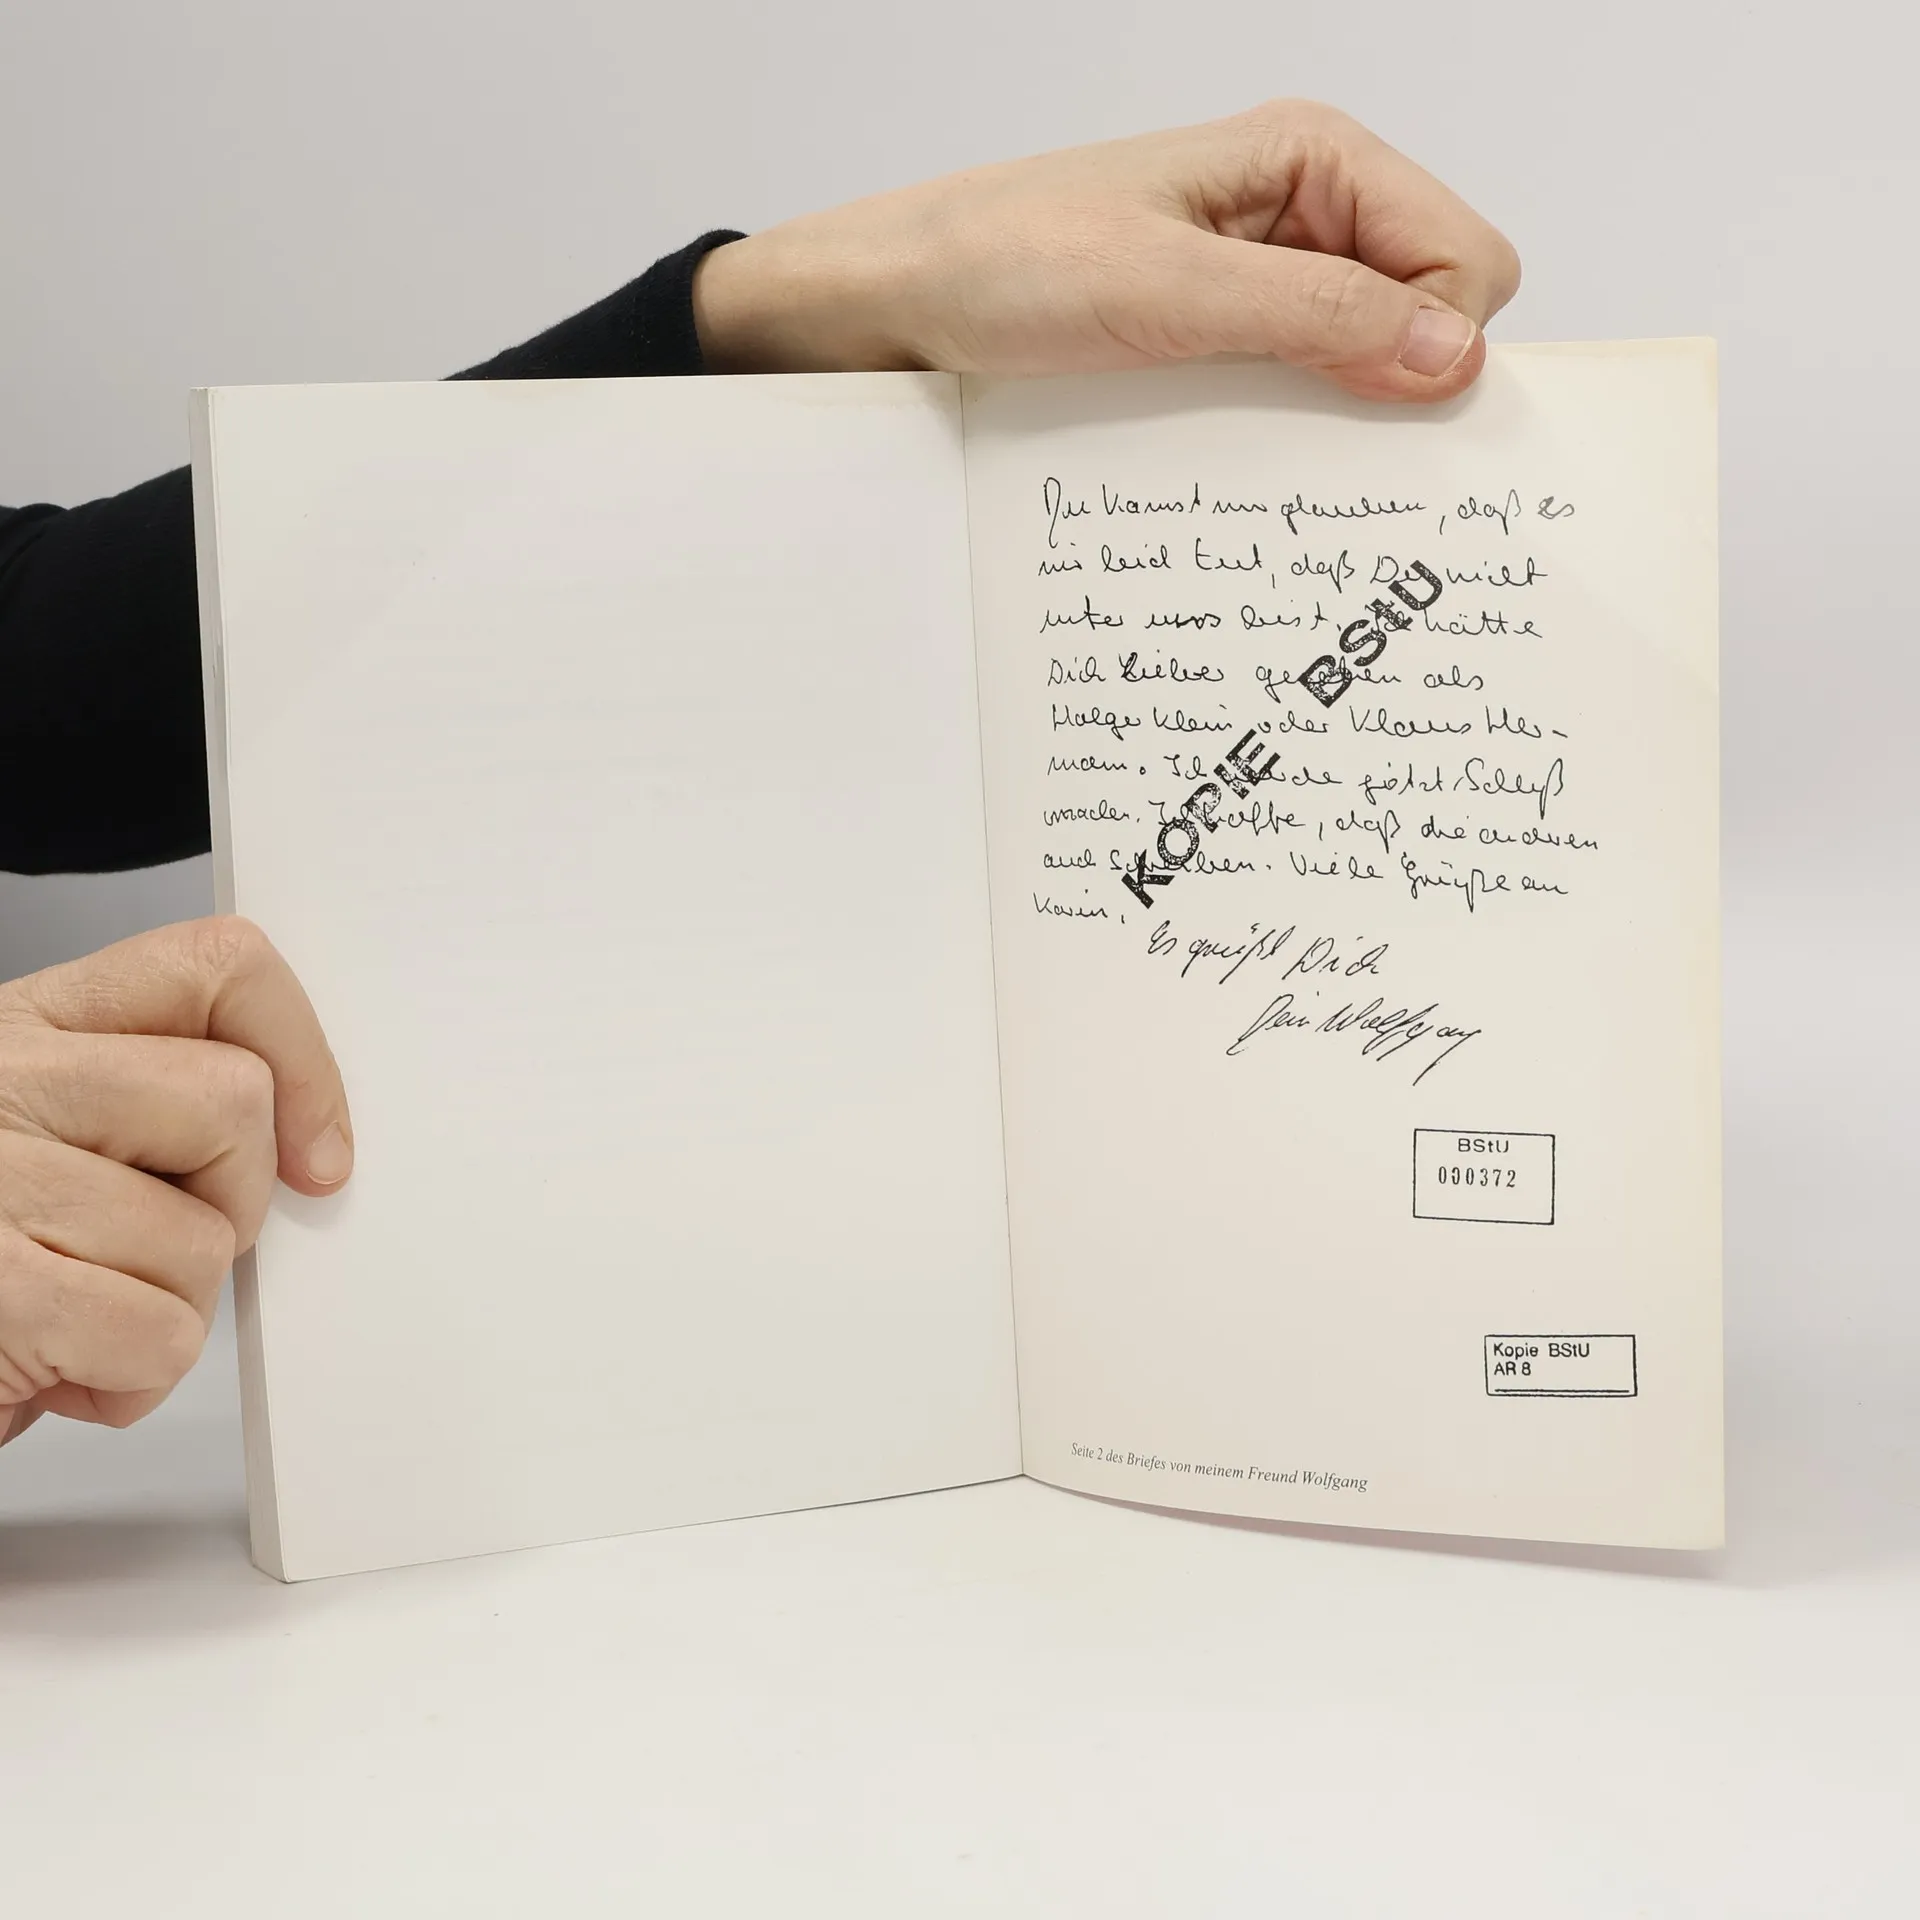 Du kannst mir glauben, daß es
mir leid tut, daß Du nicht
unter uns bist. Ich hätte
Dich lieber gesehen als
Holger Klein oder Klaus Her-
mann. Ich werde jetzt Schluß
machen. Ich hoffe, daß die anderen
auch Schreiben. Viele Grüße an
Karin.
Es grüßt Dich
Dein Wolfgang
KOPIE BStU
BStU
000372
Kopie BStU
AR 8
Seite 2 des Briefes von meinem Freund Wolfgang